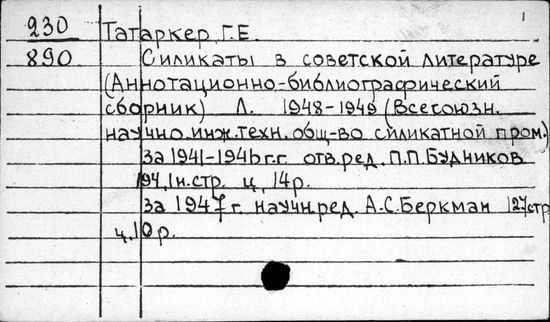 230 Татаркер, Г.Е. 1
890 Силикаты в советской литературе
(Аннотационно-библиографический
сборник) Л. 1948-1949 (Всесоюзн.
научно.инж.техн.общ-во силикатной пром.)
за 1941-1946г.г. отв.ред. П.П.Будников
194,1н.стр. ц. 14р.
за 1947г. научн.ред. А.С.Беркман 127стр
ц.10р.